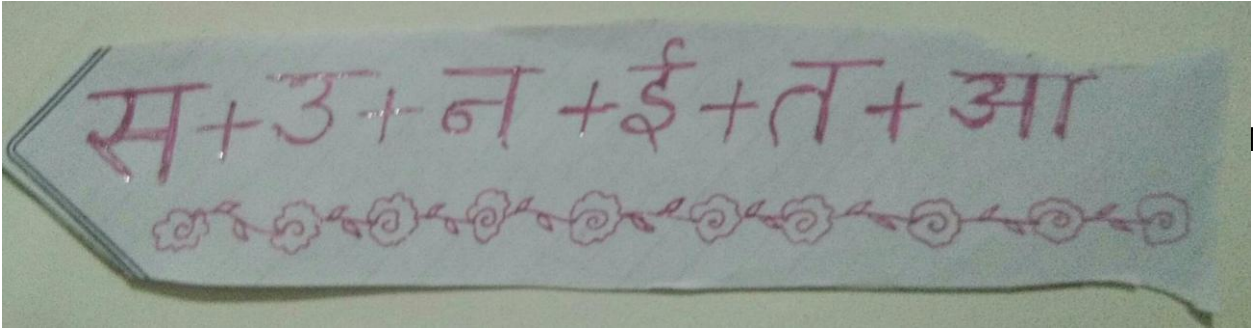 स+उ+न+ई+त+आ